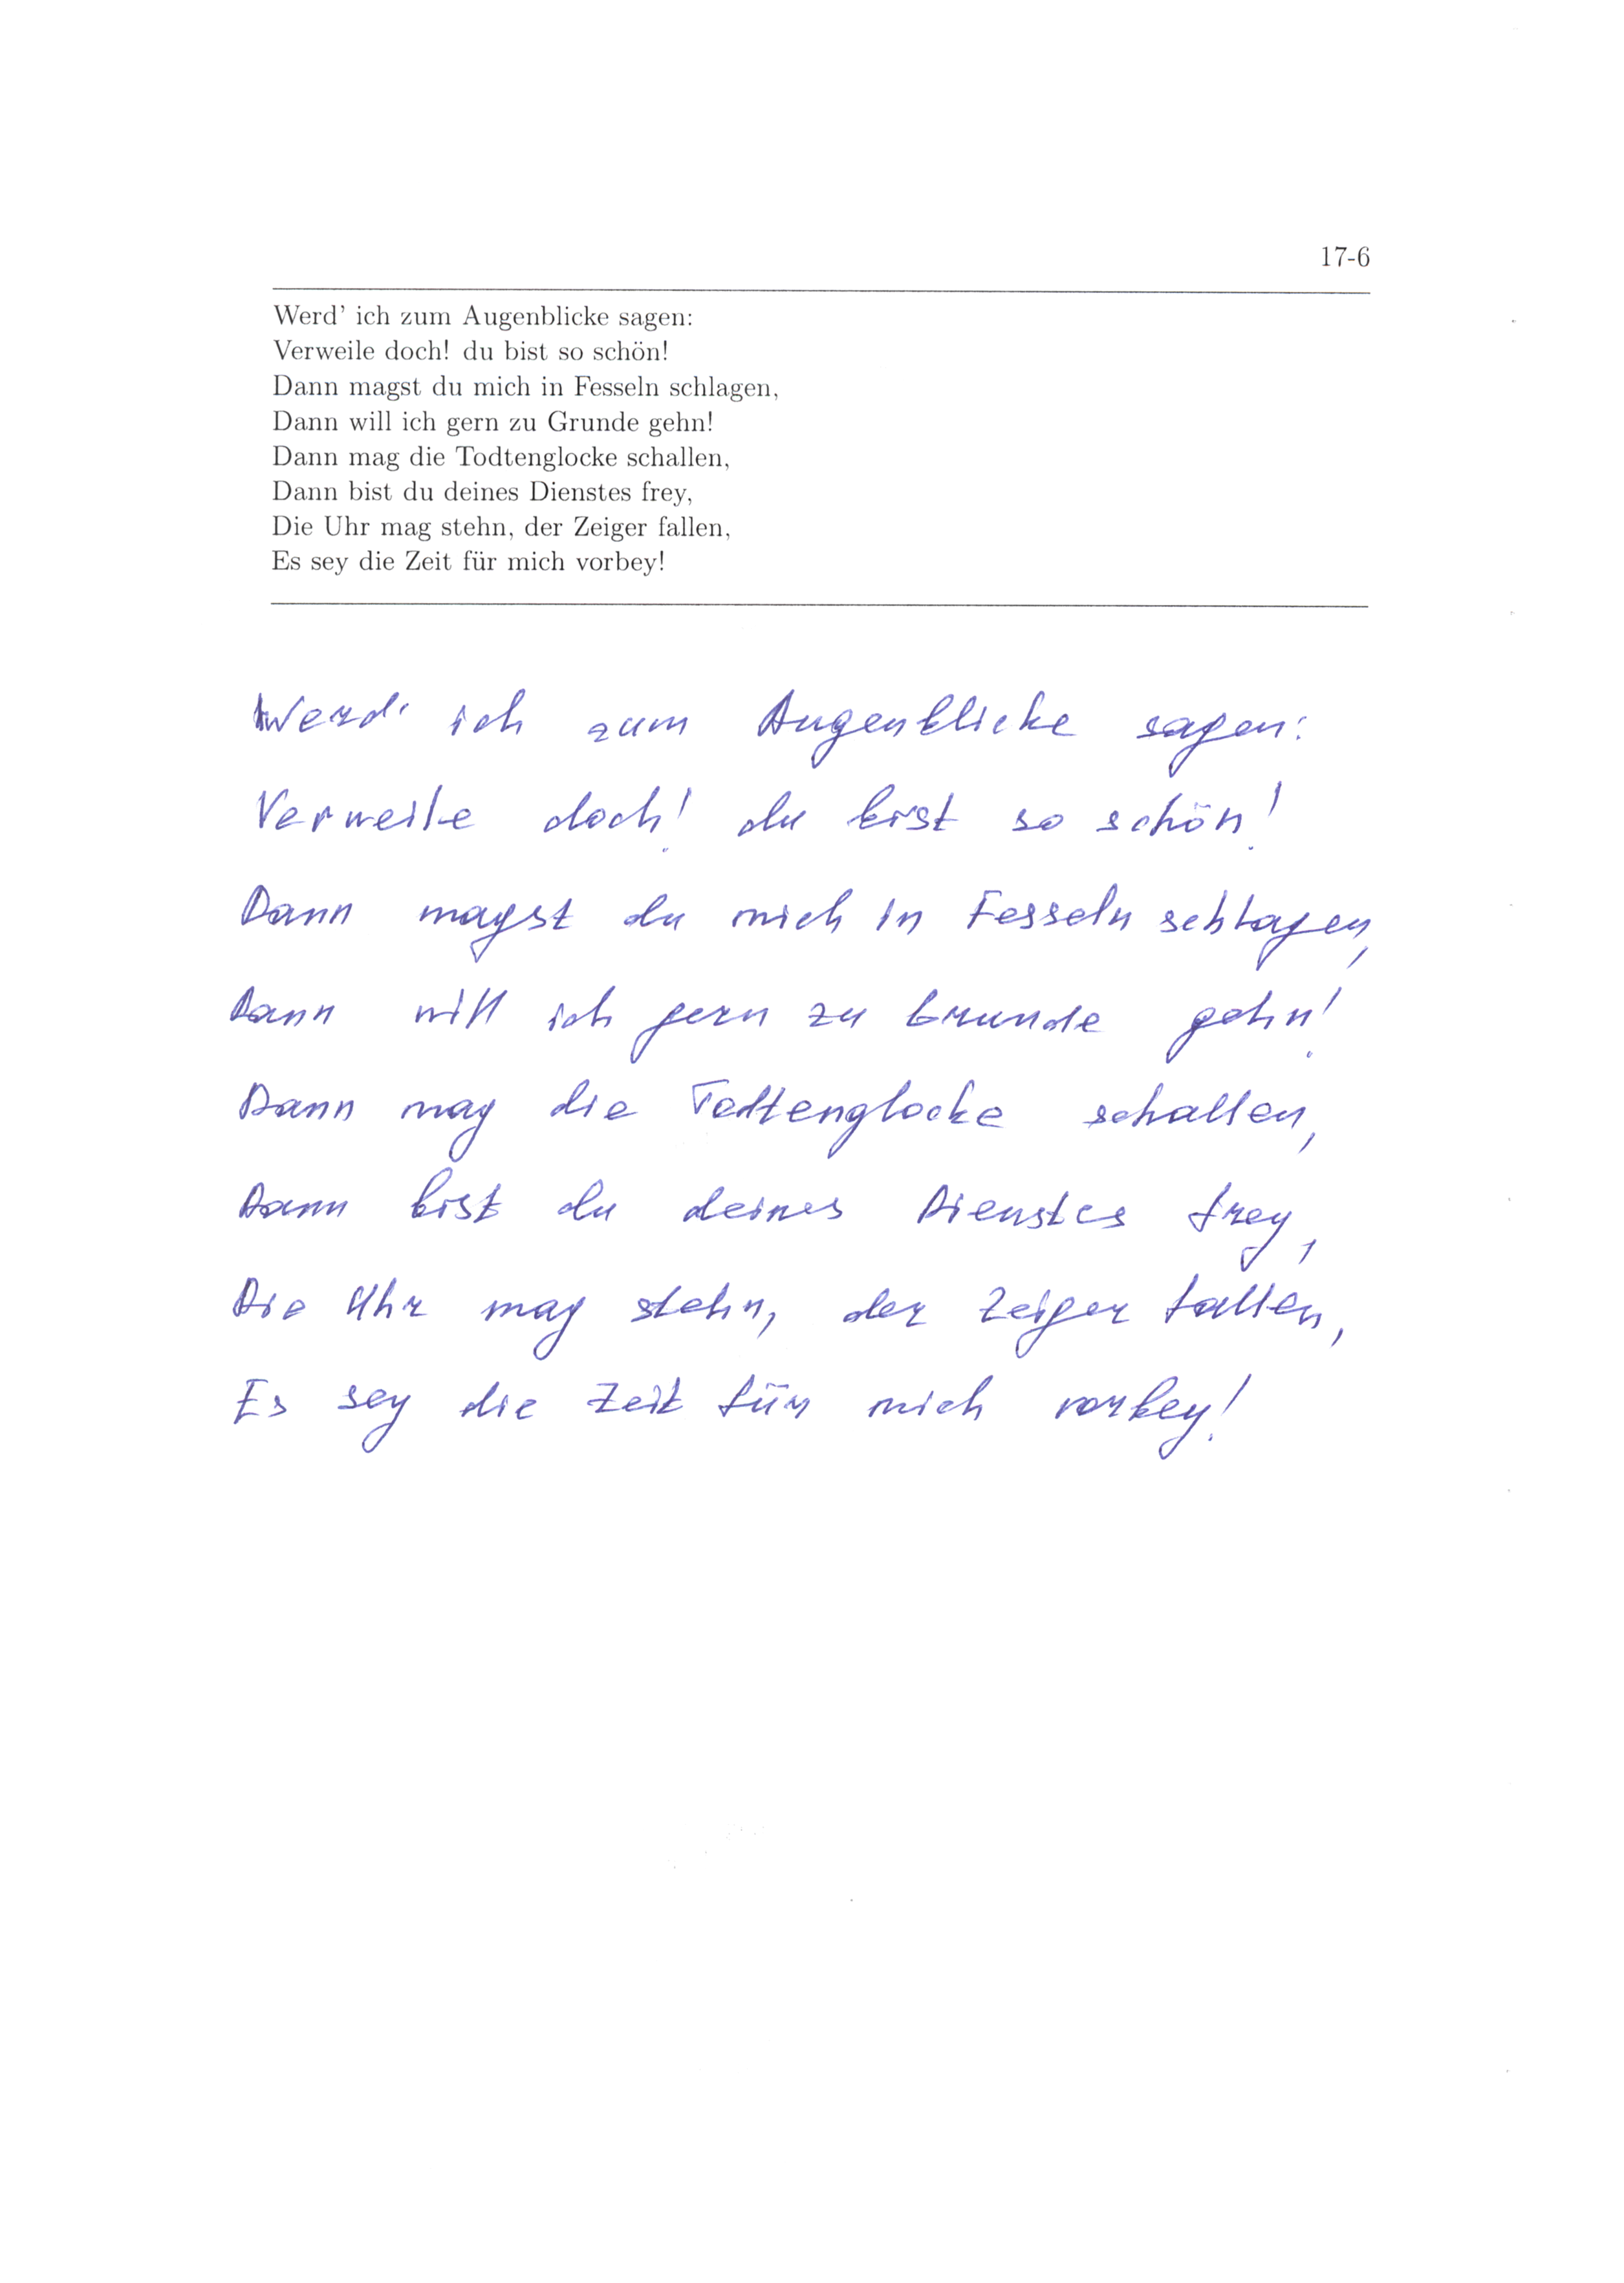 17-6
Werd' ich zum Augenblicke sagen:
Verweile doch! du bist so schön!
Dann magst du mich in Fesseln schlagen,
Dann will ich gern zu Grunde gehn!
Dann mag die Todtenglocke schallen,
Dann bist du deines Dienstes frey,
Die Uhr mag stehn, der Zeiger fallen,
Es sey die Zeit für mich vorbey!
Werd' ich zum Augenblicke sagen:
Verweile doch! du bist so schön!
Dann magst du mich in Fesseln schlagen,
Dann will ich gern zu Grunde gehn!
Dann mag die Todtenglocke schallen,
Dann bist du deines Dienstes frey,
Die Uhr mag stehn, der Zeiger fallen,
Es sey die Zeit für mich vorbey!